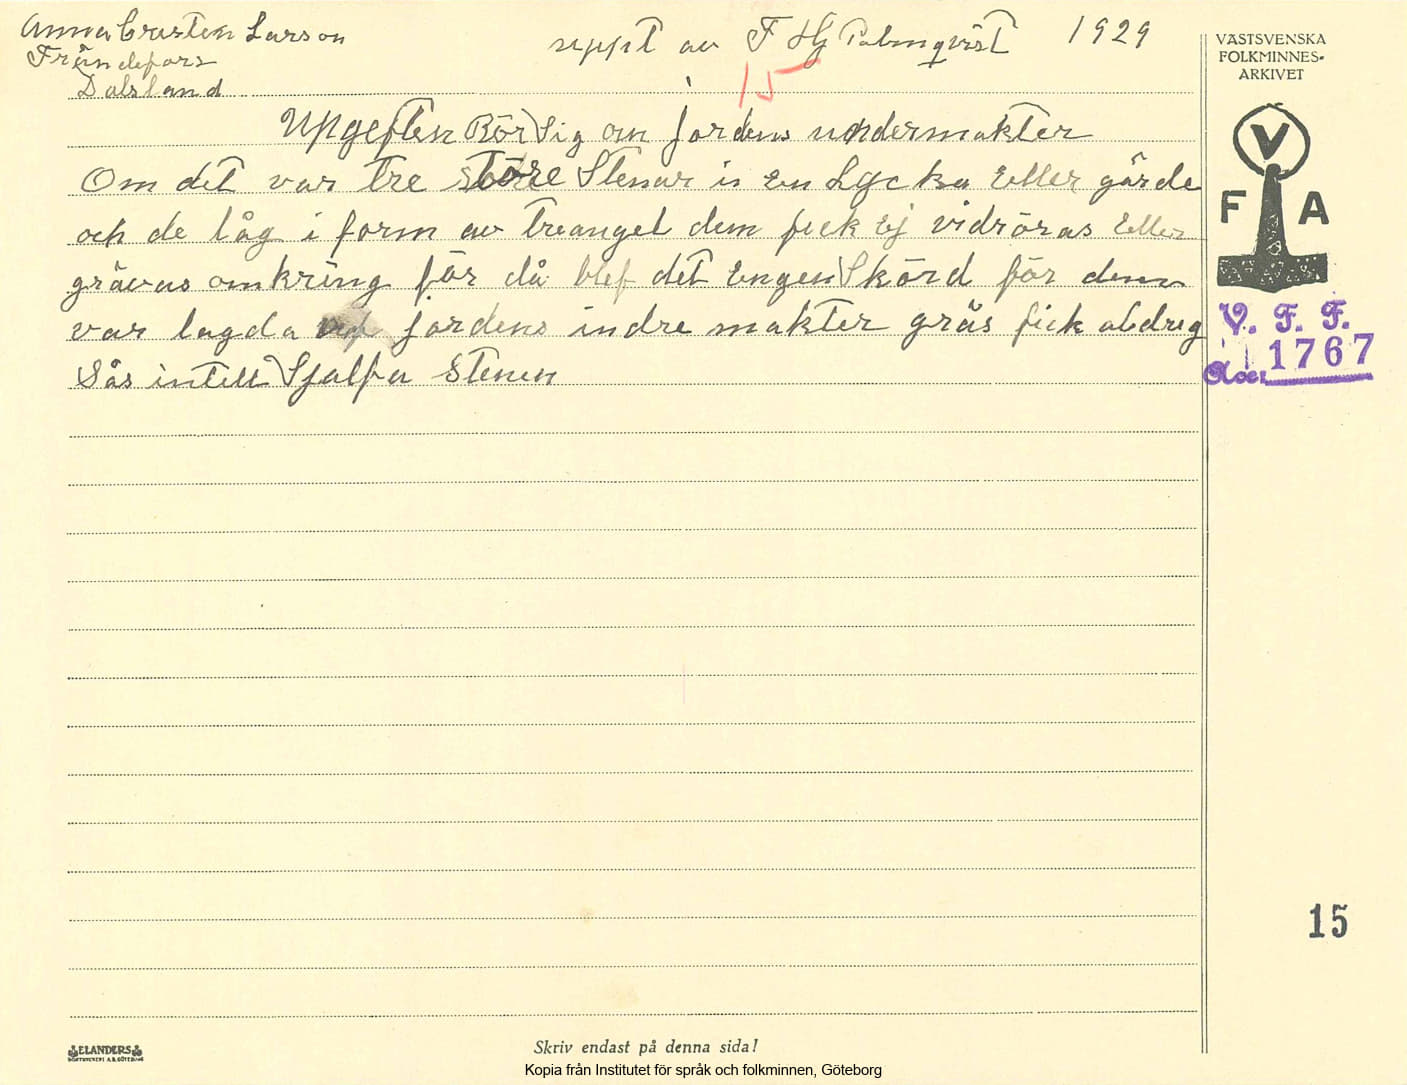 Anna Cristin Larson
uppt av F Hj Palmqvist 1929
Frändefors
Dalsland
15
Upgeften Rör Sig om jordens undermakter
Om det var tre större Stenar i En Lycka Eller gärde
och de låg i form av treangel dem feck Ej vidröras Eller
grävas omkring för då blef det Engen Skörd för dem
var lagda vid jordens indre makter gräs fick aldrig
Sås intell Sjalfa Stenen
VÄSTSVENSKA
FOLKMINNES-
ARKIVET
V
F A
V. F. F.
Acc. 1767
15
ELANDERS
Skriv endast på denna sida!
Kopia från Institutet för språk och folkminnen, Göteborg